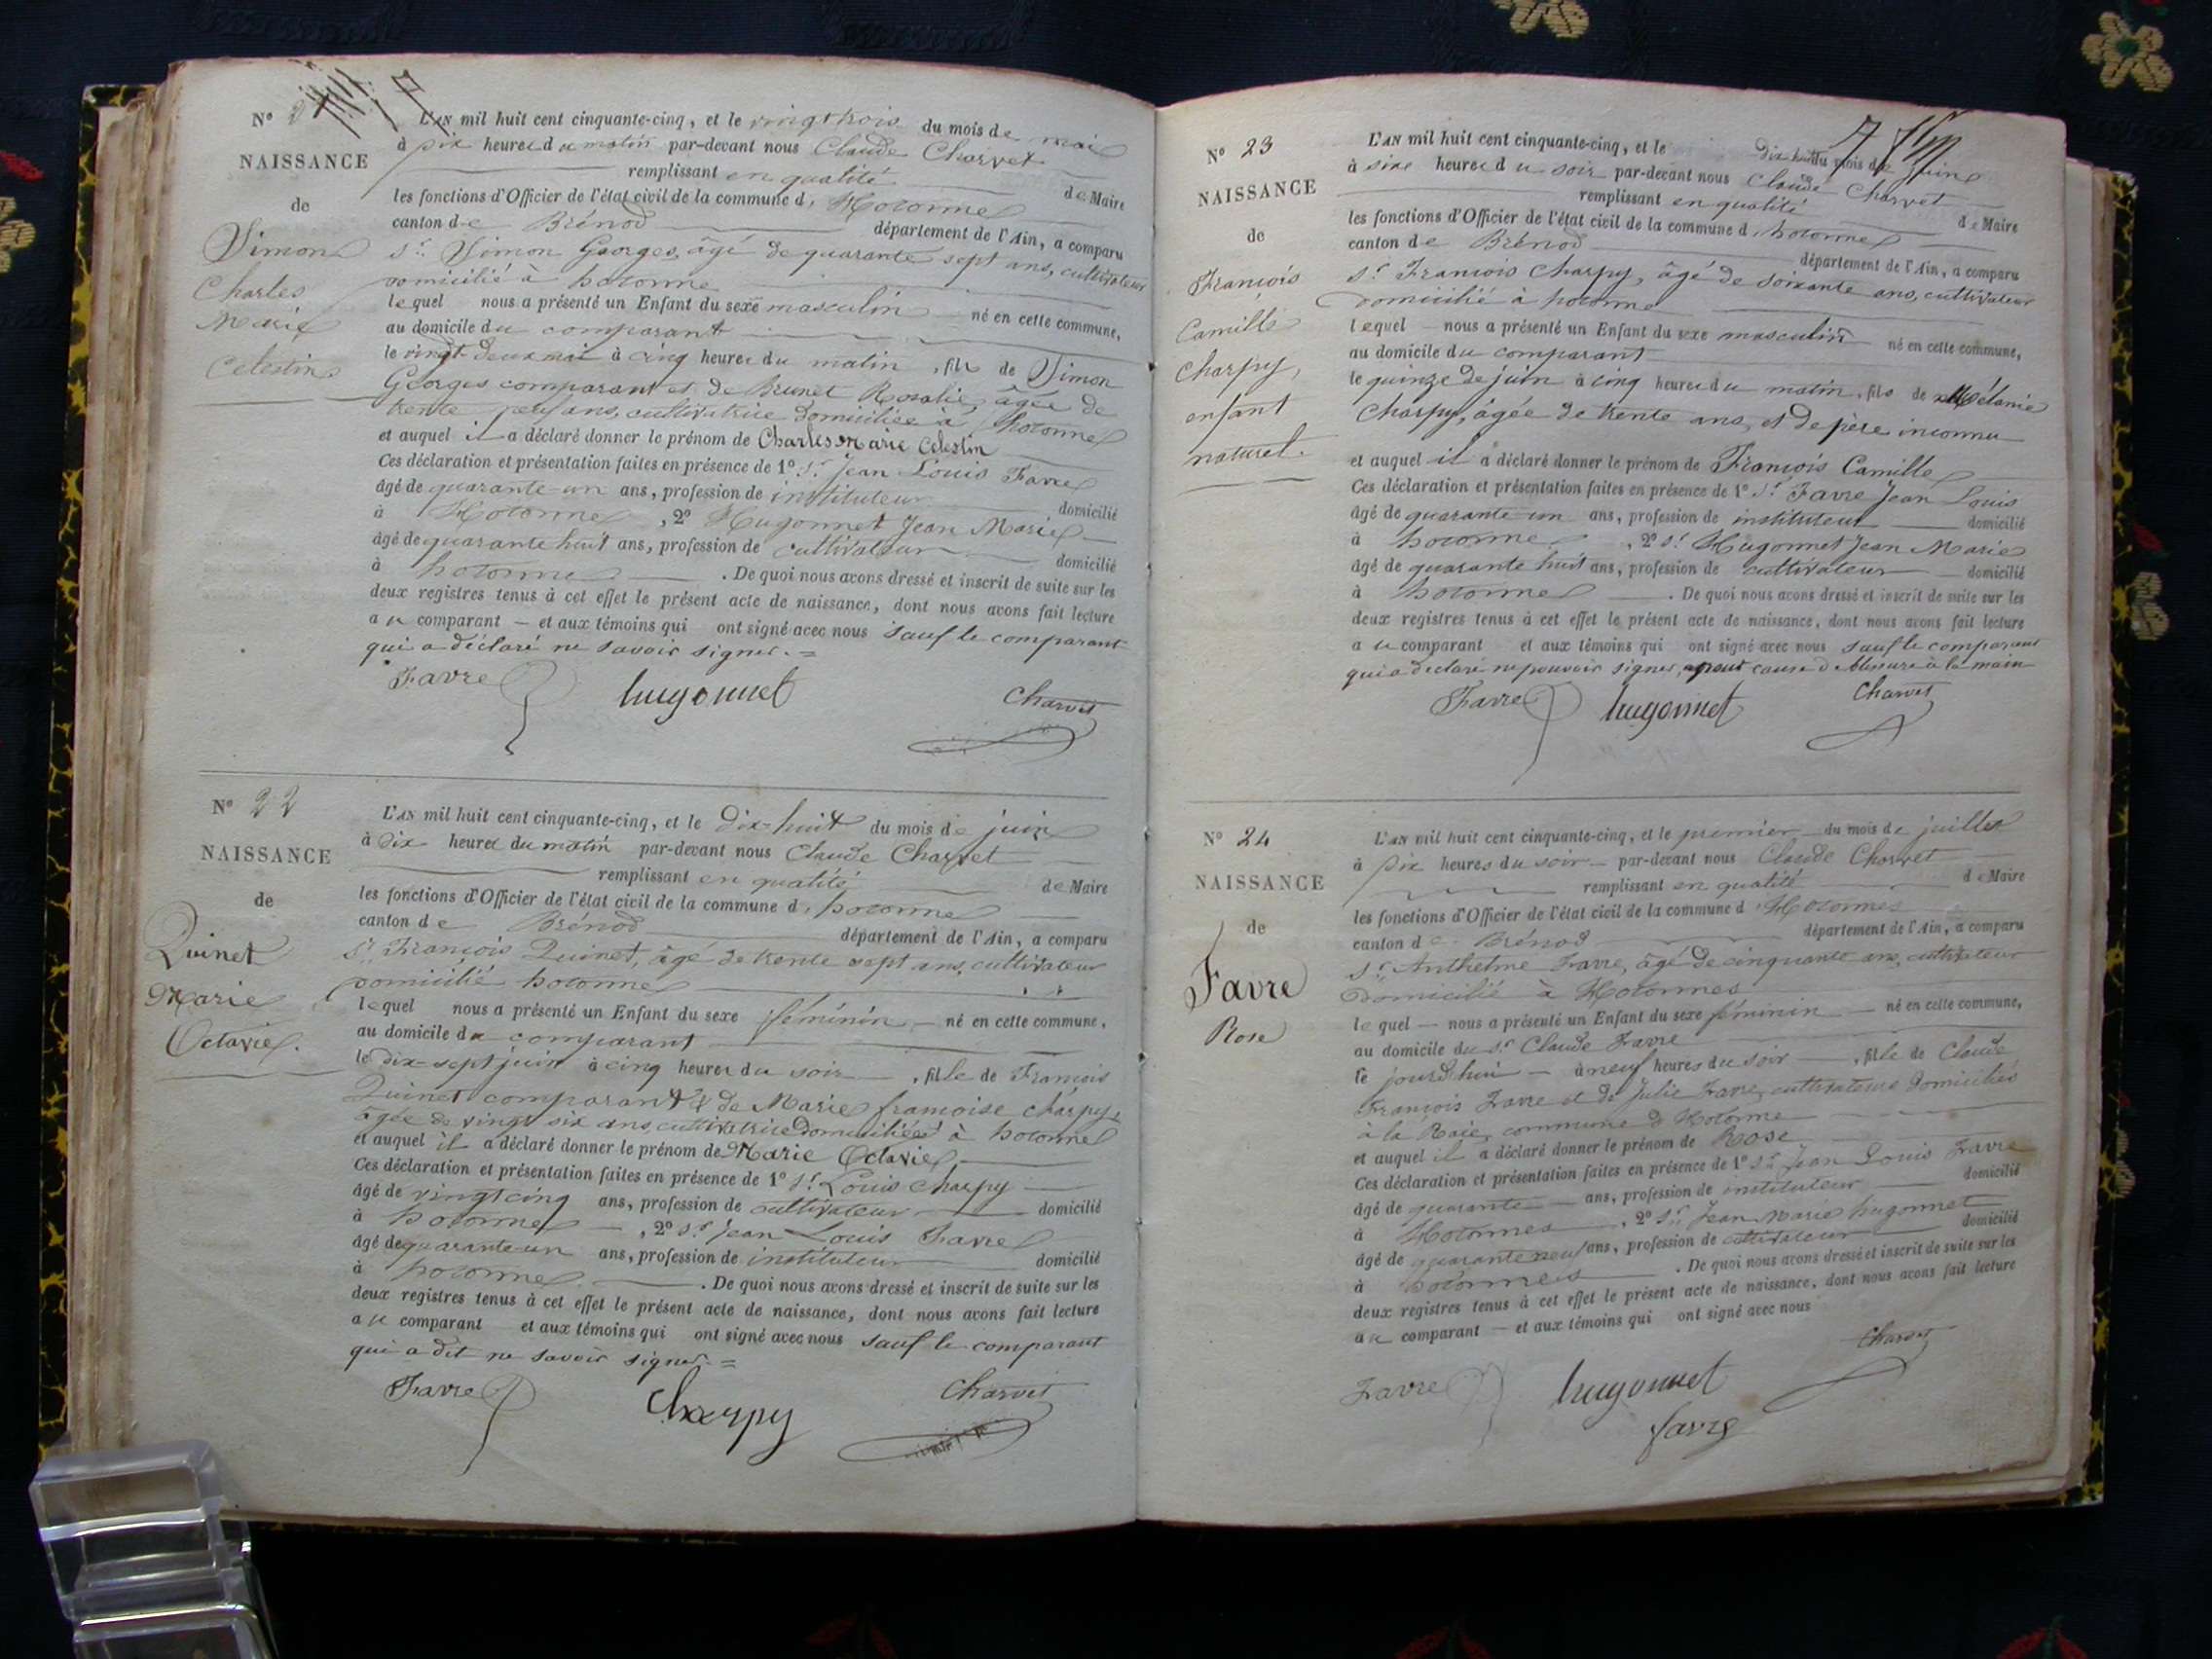 N° 2
NAISSANCE
de
Simon
Charles
Marie
Celestin
L'AN mil huit cent cinquante-cinq, et le vingt trois du mois de mai
à dix heures du matin par-devant nous Claude Charvet
remplissant en qualité de Maire
les fonctions d'Officier de l'état civil de la commune d' Hotonnes
canton de Brénod département de l'Ain, a comparu
Sr. Simon Georges, âgé de quarante sept ans, cultivateur
domicilié à hotonnes
lequel nous a présenté un Enfant du sexe masculin né en cette commune,
au domicile du comparant
le vingt-deux mai à cinq heures du matin, fils de Simon
Georges comparant et de Brunet Rosalie, âgée de
trente neuf ans, cultivatrice domiciliée à hotonnes
et auquel il a déclaré donner le prénom de Charles Marie Celestin
Ces déclaration et présentation faites en présence de 1° Sr. Jean Louis Favre
âgé de quarante-un ans, profession de instituteur domicilié
à Hotonnes, 2° Hugonnet Jean Marie
âgé de quarante huit ans, profession de cultivateur domicilié
à hotonnes. De quoi nous avons dressé et inscrit de suite sur les
deux registres tenus à cet effet le présent acte de naissance, dont nous avons fait lecture
au comparant et aux témoins qui ont signé avec nous sauf le comparant
qui a déclaré ne savoir signer.=
Favre hugonnet Charvet
N° 22
NAISSANCE
de
Quinet
Marie
Octavie.
L'AN mil huit cent cinquante-cinq, et le dix-huit du mois de juin
à dix heures du matin par-devant nous Claude Charvet
remplissant en qualité de Maire
les fonctions d'Officier de l'état civil de la commune d' hotonnes
canton de Brénod département de l'Ain, a comparu
Sr. François Quinet, âgé de trente sept ans, cultivateur
domicilié hotonnes
lequel nous a présenté un Enfant du sexe féminin né en cette commune,
au domicile du comparant
le dix-sept juin à cinq heures du soir, fille de François
Quinet comparant & de Marie françoise charpy,
âgée de vingt six ans, cultivatrice domiciliée à hotonnes
et auquel il a déclaré donner le prénom de Marie Octavie
Ces déclaration et présentation faites en présence de 1° Sr. Louis charpy
âgé de vingt cinq ans, profession de cultivateur domicilié
à hotonnes, 2° Sr Jean Louis Favre
âgé de quarante-un ans, profession de instituteur domicilié
à hotonnes. De quoi nous avons dressé et inscrit de suite sur les
deux registres tenus à cet effet le présent acte de naissance, dont nous avons fait lecture
au comparant et aux témoins qui ont signé avec nous sauf le comparant
qui a dit ne savoir signer.=
Favre Charpy Charvet
N° 23
NAISSANCE
de
François
Camille
Charpy,
enfant
naturel.
L'AN mil huit cent cinquante-cinq, et le dix huit du mois de juin
à sixe heures du soir par-devant nous Claude Charvet
remplissant en qualité de Maire
les fonctions d'Officier de l'état civil de la commune d' hotonnes
canton de Brénod département de l'Ain, a comparu
Sr François Charpy, âgé de soixante ans, cultivateur
domicilié à hotonnes
lequel nous a présenté un Enfant du sexe masculin né en cette commune,
au domicile du comparant
le quinze de juin à cinq heures du matin, fils de Mélanie
Charpy, âgée de trente ans, et de père inconnu
et auquel il a déclaré donner le prénom de François Camille
Ces déclaration et présentation faites en présence de 1° Sr Favre Jean Louis
âgé de quarante-un ans, profession de instituteur domicilié
à hotonnes, 2° Sr Hugonnet Jean Marie
âgé de quarante huit ans, profession de cultivateur domicilié
à hotonnes. De quoi nous avons dressé et inscrit de suite sur les
deux registres tenus à cet effet le présent acte de naissance, dont nous avons fait lecture
au comparant et aux témoins qui ont signé avec nous sauf le comparant
qui a déclaré ne pouvoir signer, pour cause de blessure à la main
Favre hugonnet Charvet
N° 24
NAISSANCE
de
Favre
Rose
L'AN mil huit cent cinquante-cinq, et le premier du mois de juillet
à dix heures du soir par-devant nous Claude Charvet
remplissant en qualité de Maire
les fonctions d'Officier de l'état civil de la commune d' Hotonnes
canton de Brénod département de l'Ain, a comparu
Sr Anthelme Favre, âgé de cinquante ans, cultivateur
domicilié à Hotonnes
lequel nous a présenté un Enfant du sexe féminin né en cette commune,
au domicile du Sr Claude Favre
le jourd'hui à neuf heures du soir, fille de Claude
François Favre et de Julie Favre, cultivateurs domiciliés
à la Raie, commune d'Hotonne
et auquel il a déclaré donner le prénom de Rose
Ces déclaration et présentation faites en présence de 1° Sr Jean Louis Favre
âgé de quarante ans, profession de instituteur domicilié
à Hotonnes, 2° Sr Jean Marie hugonnet
âgé de quarante neuf ans, profession de cultivateur domicilié
à hotonnes. De quoi nous avons dressé et inscrit de suite sur les
deux registres tenus à cet effet le présent acte de naissance, dont nous avons fait lecture
au comparant et aux témoins qui ont signé avec nous
Favre hugonnet Charvet
favre